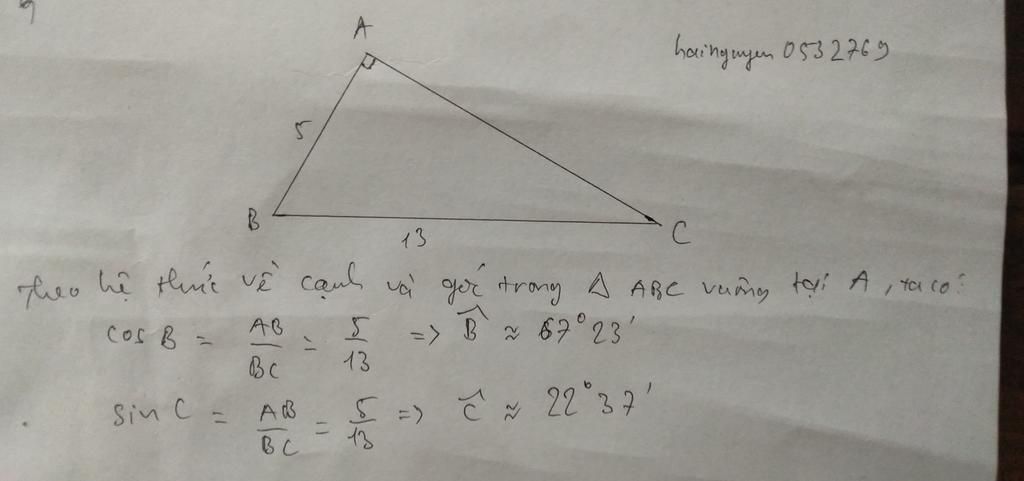 9
A
hainguyen 0532769
5
B
13
C
Theo hệ thức về cạnh và góc trong Δ ABC vuông tại A, ta có:
cos B = AB/BC = 5/13 => B̂ ≈ 67°23'
sin C = AB/BC = 5/13 => Ĉ ≈ 22°37'